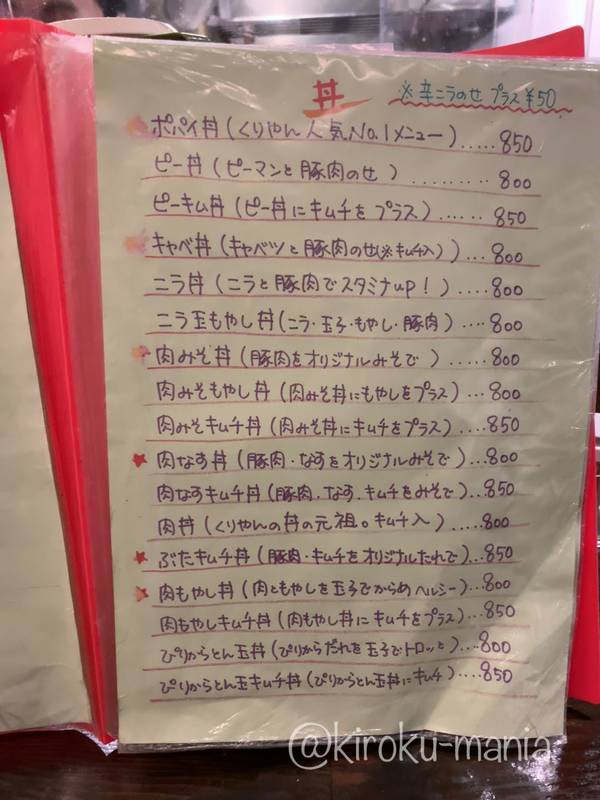 丼 ※辛ニラのせ プラス ¥50
ポパイ丼(くりやん人気No.1メニュー).....850
ピー丼(ピーマンと豚肉のせ)........800
ピーキム丼(ピー丼にキムチをプラス)......850
キャベ丼(キャベツと豚肉のせ(※キムチ入))...800
ニラ丼(ニラと豚肉でスタミナup!)....800
ニラ玉もやし丼(ニラ・玉子・もやし・豚肉)....800
肉みそ丼(豚肉をオリジナルみそで)....800
肉みそもやし丼(肉みそ丼にもやしをプラス)...800
肉みそキムチ丼(肉みそ丼にキムチをプラス)...850
肉なす丼(豚肉・なすをオリジナルみそで)...800
肉なすキムチ丼(豚肉・なす・キムチをみそで)...850
肉丼(くりやんの丼の元祖。キムチ入)....800
ぶたキムチ丼(豚肉・キムチをオリジナルたれで)...850
肉もやし丼(肉ともやしを玉子でからめヘルシー)...800
肉もやしキムチ丼(肉もやし丼にキムチをプラス)...850
ぴりからとん玉丼(ぴりからだれを玉子でトロッと)...800
ぴりからとん玉キムチ丼(ぴりからとん玉丼にキムチ)...850
@kiroku-mania